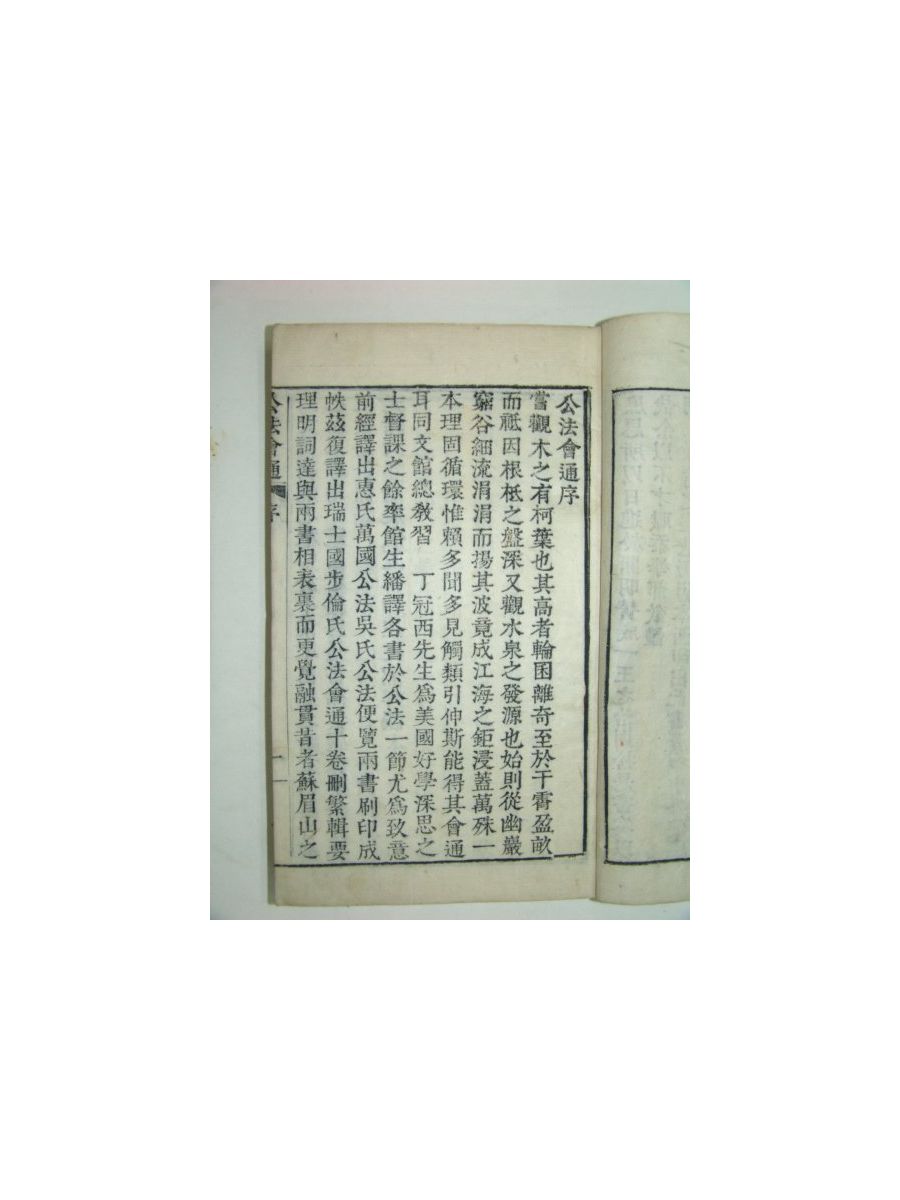 公法會通序
嘗觀木之有柯葉也其高者輪囷離奇至於干霄盈畝
而祗因根柢之盤深又觀水泉之發源也始則從幽巖
窮谷細流涓涓而揚其波竟成江海之鉅浸蓋萬殊一
本理固循環惟賴多聞多見觸類引伸斯能得其會通
耳同文館總教習 丁冠西先生爲美國好學深思之
士督課之餘率館生繙譯各書於公法一節尤爲致意
前經譯出惠氏萬國公法吳氏公法便覽兩書刷印成
帙茲復譯出瑞士國步倫氏公法會通十卷刪繁輯要
理明詞達與兩書相表裏而更覺融貫昔者蘇眉山之
公法會通 序 一